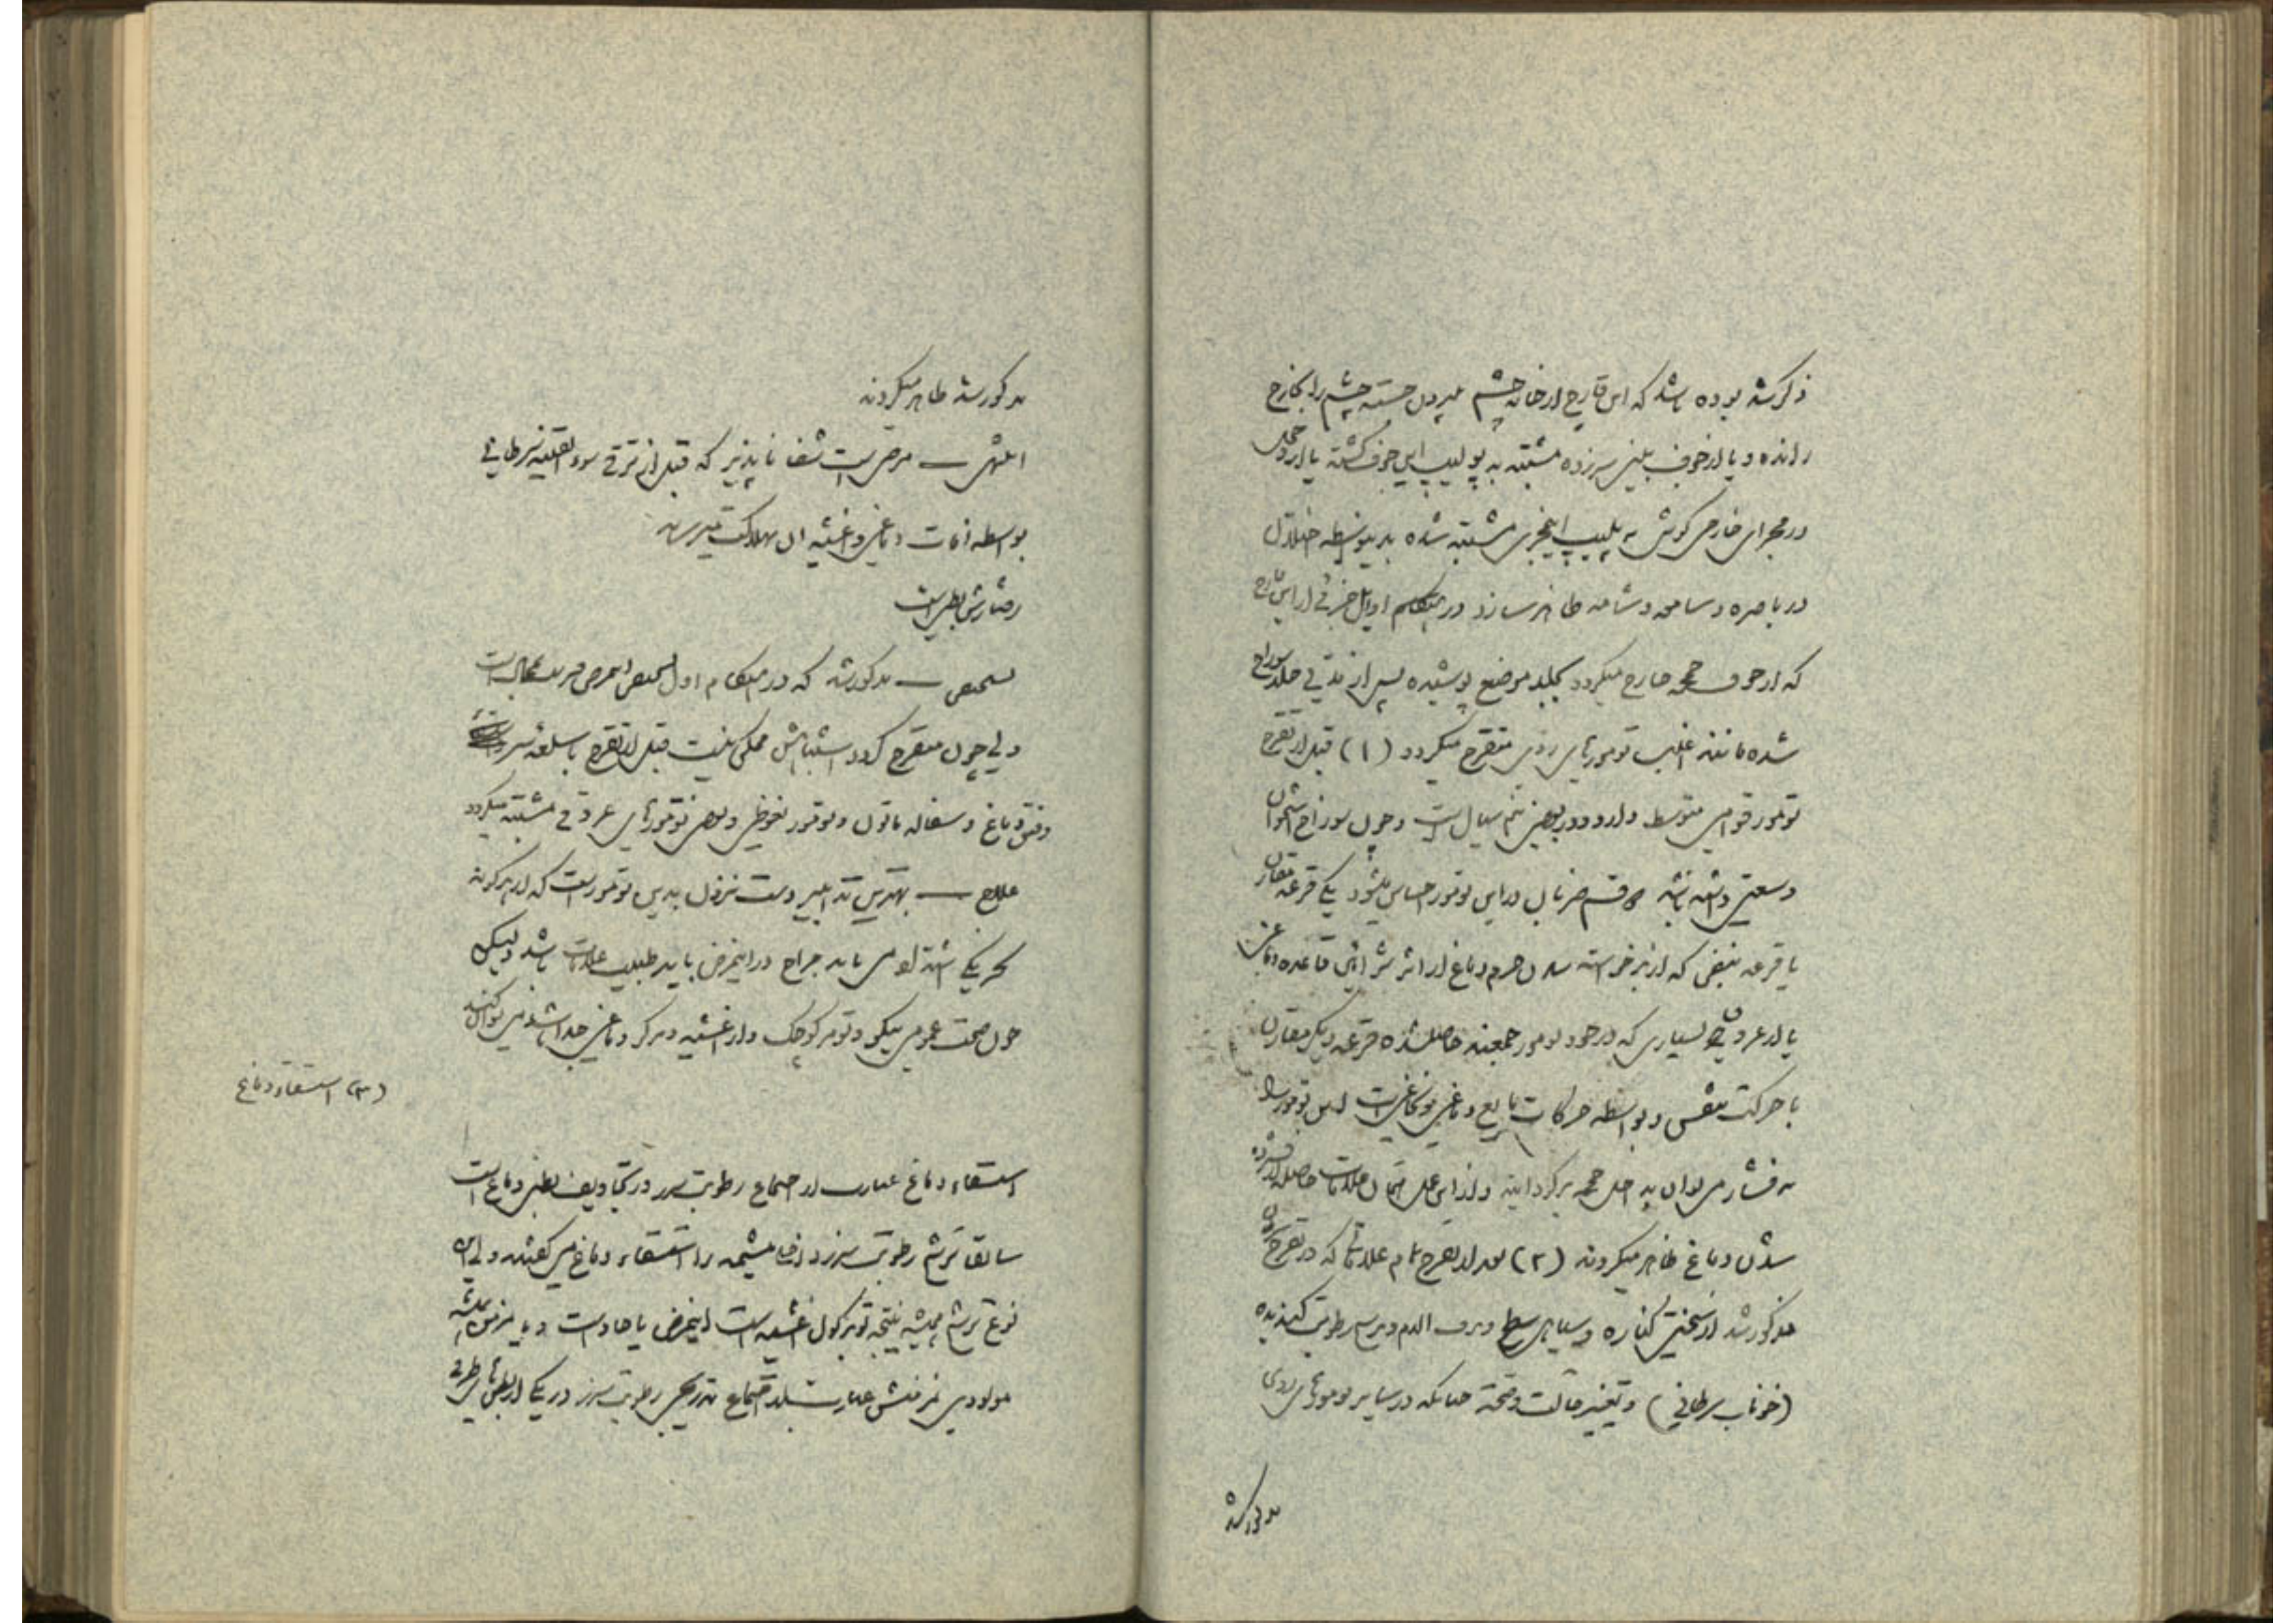 ذکر شد بوده باشد که این قارچ از خانه چشم بیرون جسته چشم را بخارج
رانده و یا از جوف بینی سر زده مشتبه به پولیپ این جوف گشته یا
در مجرای خارجی گوش به پلیپ اینمجری مشتبه شده بدینواسطه اختلال
در باصره و سامعه و شامه ظاهر سازد در هنگام اوایل جزئی از این قارچ
که از جوف جمجمه خارج میگردد بجلد موضع پوشیده پس از مدتی جلد سوراخ
شده مانند اغلب تومورهای ردی متقرح میگردد (۱) قبل از تقرح
تومور قوامی متوسط دارد و در بعضی نیم سیال است و چون سوراخ استخوان
وسعتی داشته باشد دو قسم ضربان در این تومور احساس میشود یکی قرعه مقارن
با قرعه نبض که از برخواسته شدن جرم دماغ از اثر شرائین قاعده دماغ
یا از عروق بسیاری که در خود تومور جمعند حاصل شده قرعه دیگر مقارن
با حرکت تنفس و بواسطه حرکات مایع دماغی نخاعی است این تومور را
به فشار می توان به داخل جمجمه برگردانید و از این عمل همان علامات حاصله از فشرده
شدن دماغ ظاهر میگردند (۲) بعد از تقرح تمام علاماتی که در تقرح
مذکور شد از سختی کناره و سیاهی سطح و نزف الدم و ترشح رطوبت گندیده
(خوناب سرطانی) و تغییر حالت و صحة چنانکه در سایر تومورهای ردی
مذکور شد
مذکور شد ظاهر میگردند
انتهی — مرضی است شفا ناپذیر که قبل از ترقی سوء القنیه سرطانی
بواسطه آفات دماغی و اغشیه آن بهلاکت میرساند
رفتارش بطی است
تشخیص — مذکور شد که در هنگام اول تشخیص این مرض قریب بمحال است
ولی چون متقرح گردد اشتباهش ممکن نیست قبل از تقرح با سلعه
و فتق دماغ و سفاله ماتوم و تومور نعوظی و بعضی تومورهای عروقی مشتبه میگردد
علاج — بهترین تدابیر دست نزدن بدین تومور است که از هرگونه
تحریکی اشتداد می یابد جراح در اینمرض باید طبیب علامات باشد و لیکن
چون صحت عمومی نیکو و تومر کوچک و از اغشیه و مرکز دماغی جدا باشد می توانند
(۳) استسقاء دماغ
استسقاء دماغ عبارت از اجتماع رطوبت سرز در تجاویف بطنی دماغ است
سابقا ترشح رطوبت سرز در اغشیه را استسقاء دماغ می گفتند ولی این
نوع ترشح همیشه نتیجه توبرکول اغشیه است اینمرض یا حاد است و یا مزمن
مولودی مزمنش عبارتست از اجتماع تدریجی رطوبت سرز در یکی از بطن های طرفی